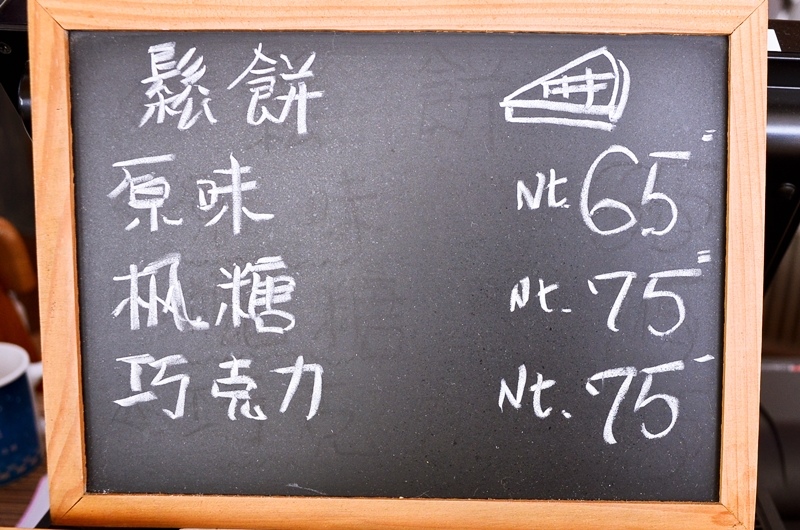 鬆餅
原味 Nt. 65
楓糖 Nt. 75
巧克力 Nt. 75